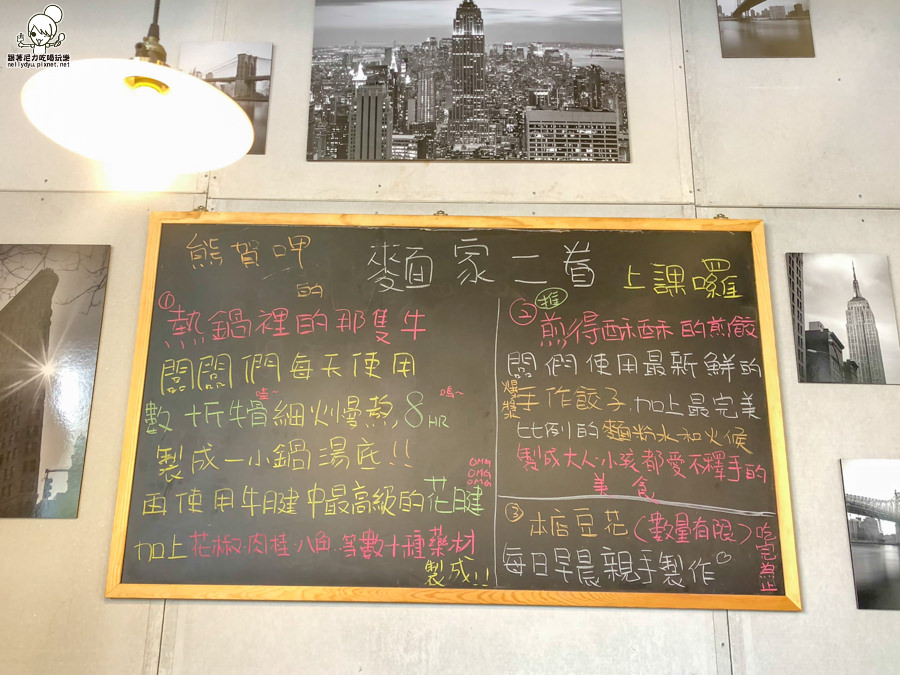 跟著尼力吃喝玩樂
nellydyu.pixnet.net
熊賀呷 的 麵家二首 上課囉
① 熱鍋裡的那隻牛
闆闆們每天使用
數十斤牛骨細火慢熬, 8HR
哇~
嗚~
製成一小鍋湯底!!
OMG
OMG
OMG
再使用牛腱中最高級的花腱
加上花椒.肉桂.八角..等數十種藥材
製成!!
② 推
煎得酥酥酥的煎餃
闆們使用最新鮮的
爆漿手作餃子,加上最完美
比例的麵粉水和火候
製成大人.小孩都愛不釋手的
美食
③ 本店豆花(數量有限)吃完為止
每日早晨親手製作